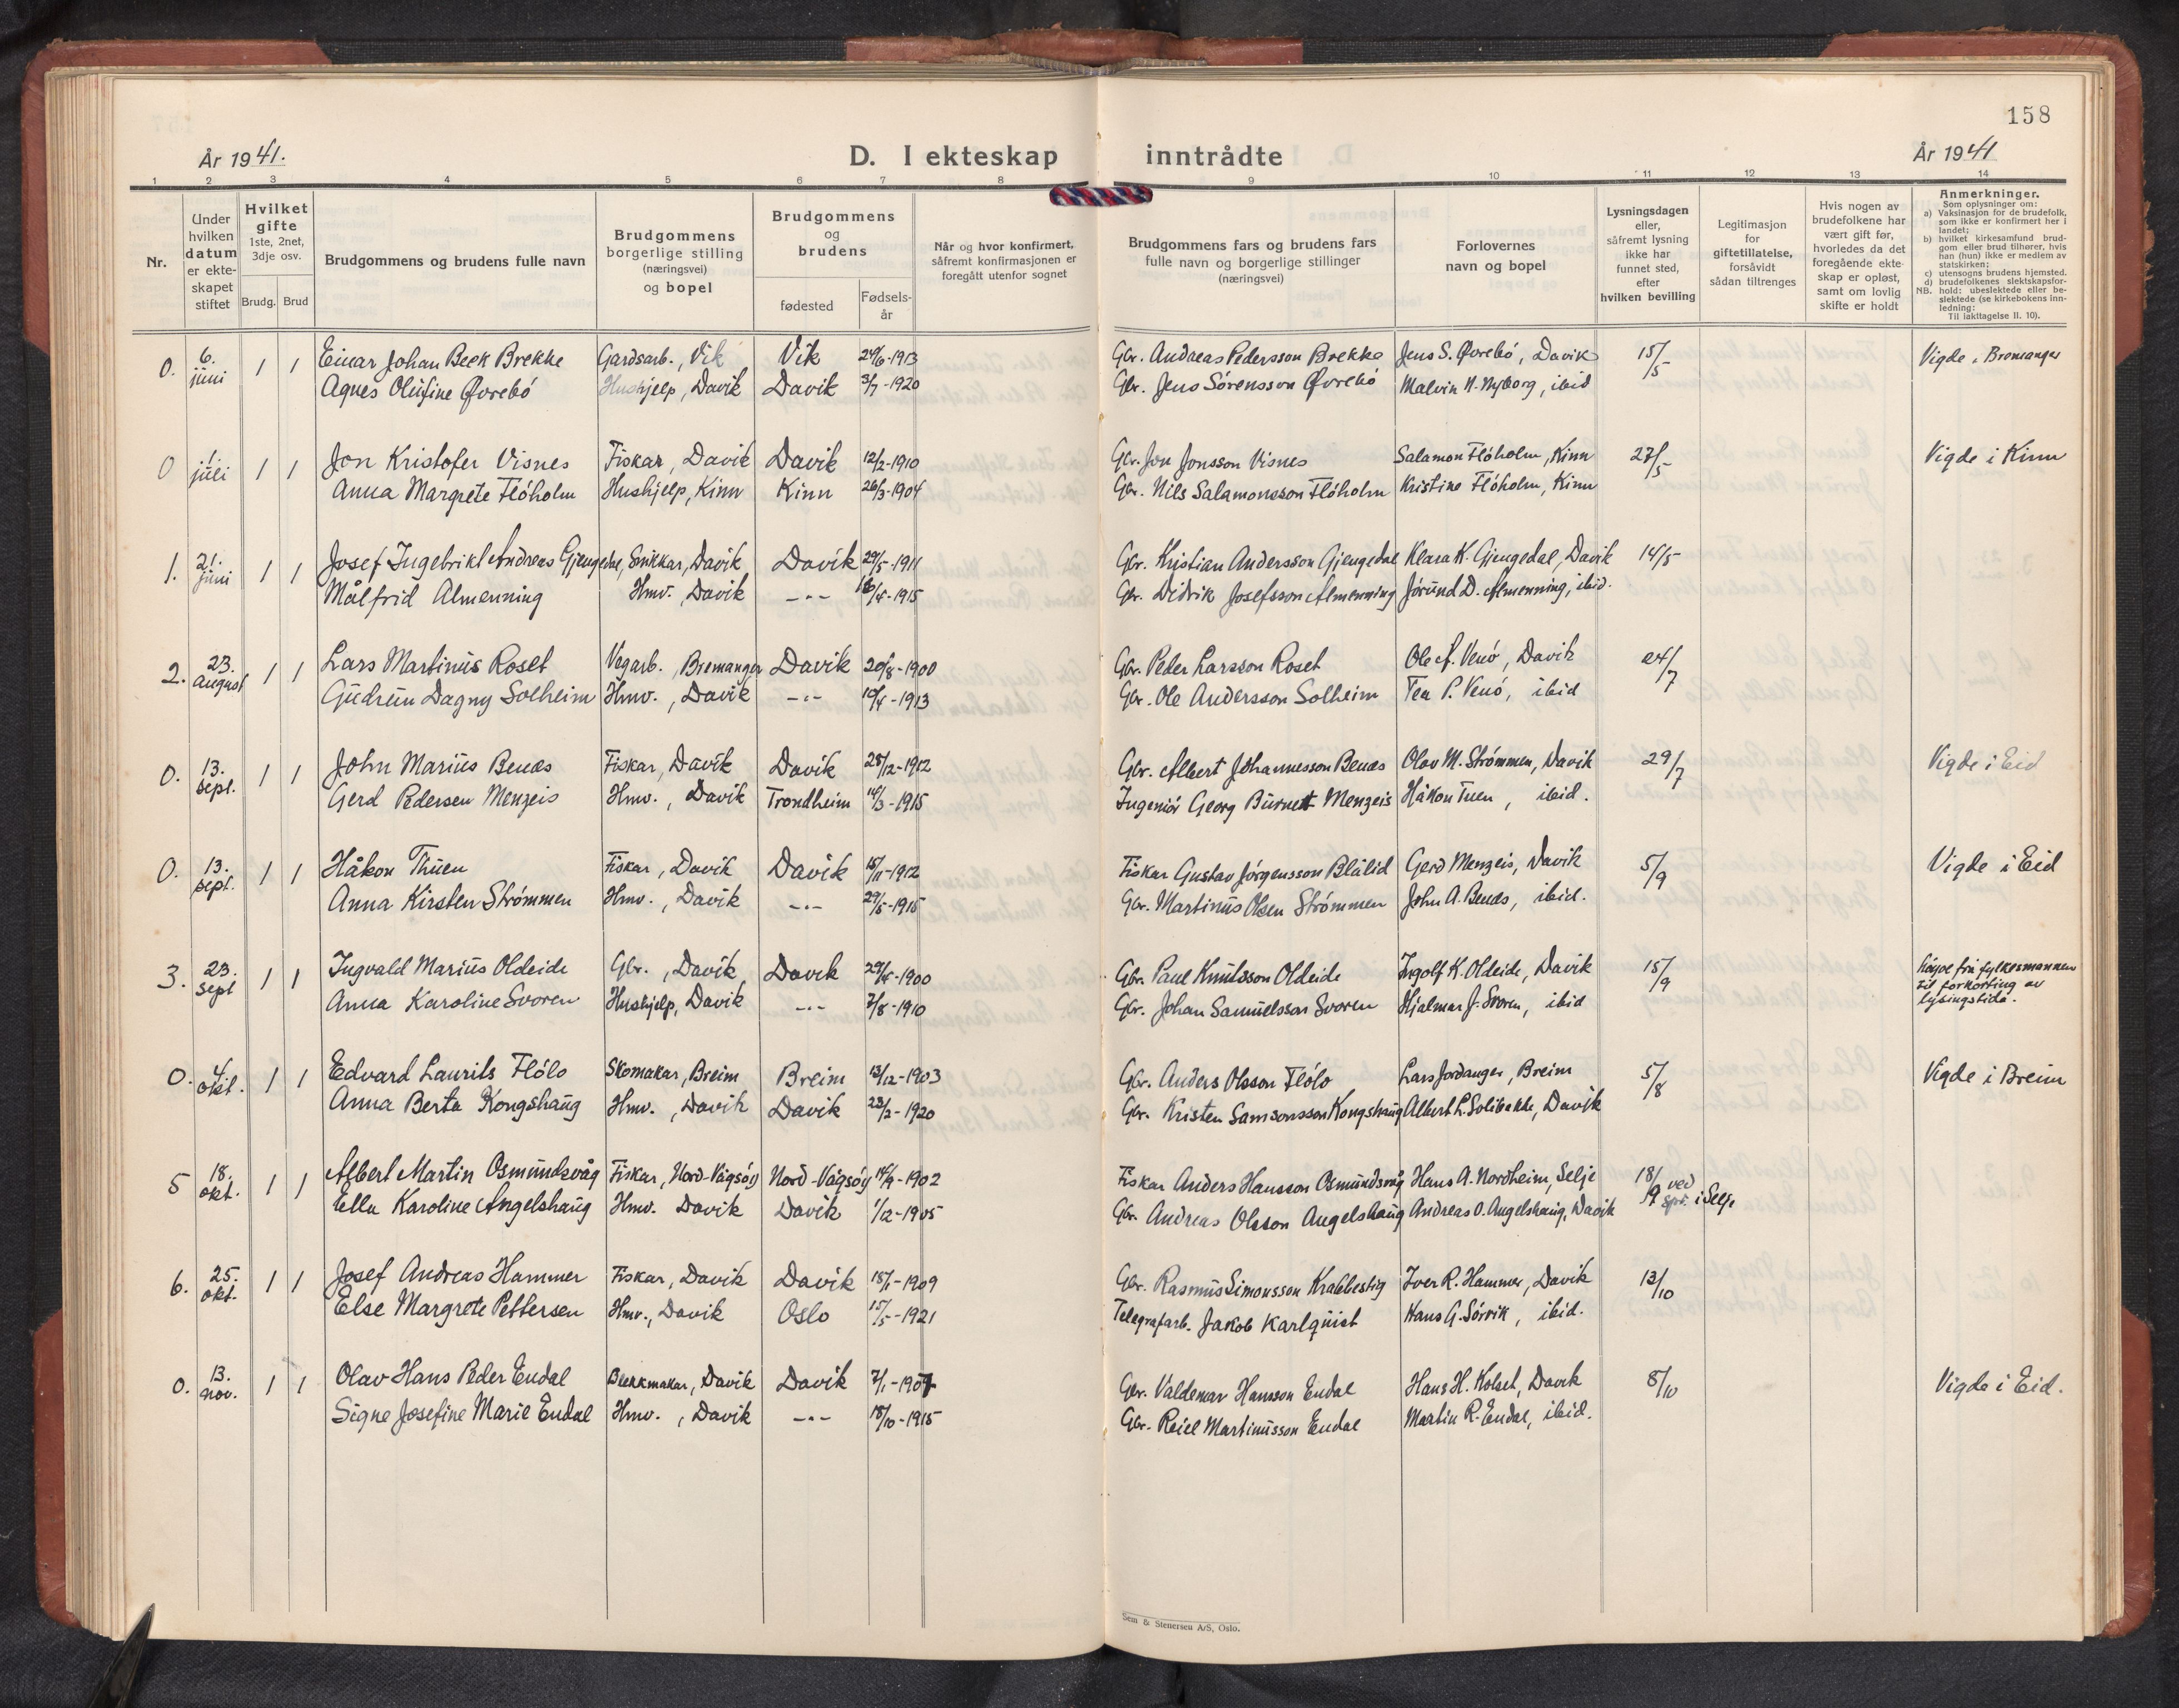 158
År 1941.
D. I ekteskap inntrådte
År 1941
1 2 3 4 5 6 7 8 9 10 11 12 13 14
Nr.
Under hvilken datum er ekteskapet stiftet
Hvilket gifte 1ste, 2net, 3dje osv.
Brudg. Brud
Brudgommens og brudens fulle navn
Brudgommens borgerlige stilling (næringsvei) og bopel
Brudgommens og brudens
fødested
Fødselsår
Når og hvor konfirmert, såfremt konfirmasjonen er foregått utenfor sognet
Brudgommens fars og brudens fars fulle navn og borgerlige stillinger (næringsvei)
Forlovernes navn og bopel
Lysningsdagen eller, såfremt lysning ikke har funnet sted, efter hvilken bevilling
Legitimasjon for giftetillatelse, forsåvidt sådan tiltrenges
Hvis nogen av brudefolkene har vært gift før, hvorledes da det foregående ekteskap er opløst, samt om lovlig skifte er holdt
Anmerkninger.
Som oplysninger om:
a) Vaksinasjon for de brudefolk, som ikke er konfirmert her i landet;
b) hvilket kirkesamfund brudgom eller brud tilhører, hvis han (hun) ikke er medlem av statskirken;
c) utensogns brudens hjemsted.
d) brudefolkenes slektskapsforhold: ubeslektede eller beslektede (se kirkebokens innledning:
NB.
Til iakttagelse II. 10).
0. 6. juni 1 1 Einar Johan Beck Brekke Gardsarb., Vik Vik 24/6-1913 Gbr. Andreas Pedersson Brekke Jens S. Øvrebó, Davik 15/5 Vigde i Bremanger
Agnes Olufine Øvrebó Hushjelp, Davik Davik 3/7-1920 Gbr. Jens Sórensson Øvrebó Malvin N. Nyborg, ibid
0 1. juli 1 1 Jon Kristofer Visnes Fiskar, Davik Davik 12/2-1910 Gbr. Jon Jonsson Visnes Salamon Flóholm, Kinn 27/5 Vigde i Kinn
Anna Margrete Flóholm Hushjelp, Kinn Kinn 26/3-1904 Gbr. Nils Salamonsson Flóholm Kristine Flóholm, Kinn
1. 21. juni 1 1 Josef Ingebrikt Andreas Gjengedal, Snikkar, Davik Davik 29/5-1911 Gbr. Kristian Andersson Gjengedal Klara K. Gjengedal, Davik 14/5
Målfrid Almenning Hmv. Davik -"- 16/4-1915 Gbr. Didrik Josefsson Almenning Jórund D. Almenning, ibid.
2. 23. august 1 1 Lars Martinus Roset Vegarb., Bremanger Davik 20/8-1900 Gbr. Peder Larsson Roset Ole A. Venó, Davik 24/7
Gudrun Dagny Solheim Hmv., Davik -"- 10/4-1913 Gbr. Ole Andersson Solheim Tea P. Venó, ibid
0. 13. sept. 1 1 John Marius Benæs Fiskar, Davik Davik 28/12-1912 Gbr. Albert Johannesson Benæs Olav M. Strómmen, Davik 29/7 Vigde i Eid
Gerd Pedersen Menzeis Hmv., Davik Trondheim 14/3-1915 Ingeniór Georg Burnett Menzeis Håkon Tuen, ibid.
0. 13. sept. 1 1 Håkon Thuen Fiskar, Davik Davik 15/11-1912 Fiskar Gustav Jórgensson Blålid Gerd Menzeis, Davik 5/9 Vigde i Eid
Anna Kirsten Strómmen Hmv., Davik -"- 29/5-1915 Gbr. Martinus Olsen Strómmen John A. Benæs, ibid.
3. 23. sept 1 1 Ingvald Marius Oldeide Gbr., Davik Davik 29/4-1900 Gbr. Paul Knutsson Oldeide Ingolf K. Oldeide, Davik 15/9 lóyve frå fylkesmannen til forkorting av lysingstida.
Anna Karoline Svoren Hushjelp, Davik -"- 7/8-1910 Gbr. Johan Samuelsson Svoren Hjalmar J. Svoren, ibid
0. 4. okt. 1 1 Edvard Laurits Flólo Skomakar, Breim Breim 13/12-1903 Gbr. Anders Olsson Flólo Lars Jordanger, Breim 5/8 Vigde i Breim
Anna Berta Kongshaug Hmv., Davik Davik 23/2-1920 Gbr. Kristen Samsonsson Kongshaug Albert L. Solibakke, Davik
5 18. okt. 1 1 Albert Martin Osmundsvåg Fiskar, Nord-Vågsóy Nord-Vågsóy 14/9-1902 Fiskar Anders Hansson Osmundsvåg Hans A. Nordheim, Selje 18/9 ved spr. i Selje
Ella Karoline Angelshaug Hmv. Davik Davik 1/12-1905 Gbr. Andreas Olsson Angelshaug Andreas O. Angelshaug, Davik
6. 25. okt. 1 1 Josef Andreas Hammer Fiskar, Davik Davik 15/1-1909 Gbr. Rasmus Simonsson Krabbestig Iver R. Hammer, Davik 13/10
Else Margrete Pettersen Hmv., Davik Oslo 15/5-1921 Telegrafarb. Jakob Karlquist Hans G. Sórvik, ibid.
0. 13. nov. 1 1 Olav Hans Peder Endal Blekkmakar, Davik Davik 7/1-1907 Gbr. Valdemar Hansson Endal Hans H. Kolset, Davik 8/10 Vigde i Eid.
Signe Josefine Marie Endal Hmv., Davik -"- 18/10-1915 Gbr. Reiel Martinusson Endal Martin R. Endal, ibid.
Sem & Stenersen A/S, Oslo.